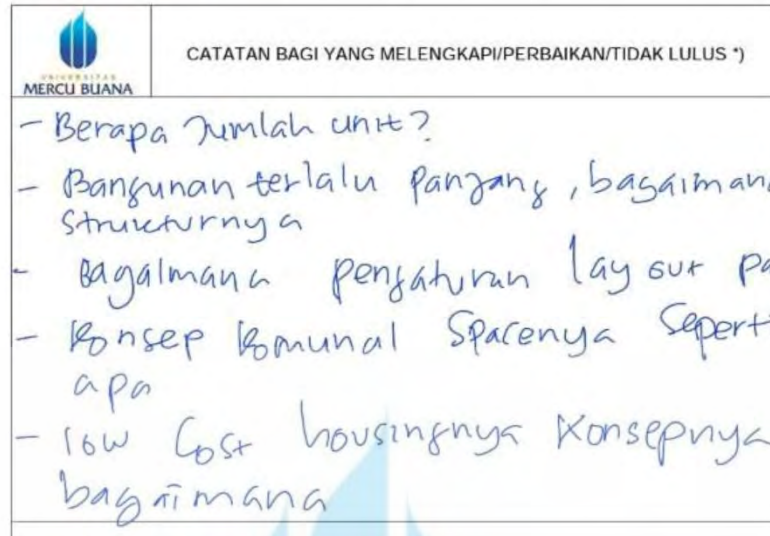 UNIVERSITAS
MERCU BUANA
CATATAN BAGI YANG MELENGKAPI/PERBAIKAN/TIDAK LULUS *)
- Berapa Jumlah unit?
- Bangunan terlalu panjang, bagaimana
strukturnya
- Bagaimana pengaturan layout pa
- Konsep komunal spacenya sepert
apa
- low cost housingnya konsepnya
bagaimana